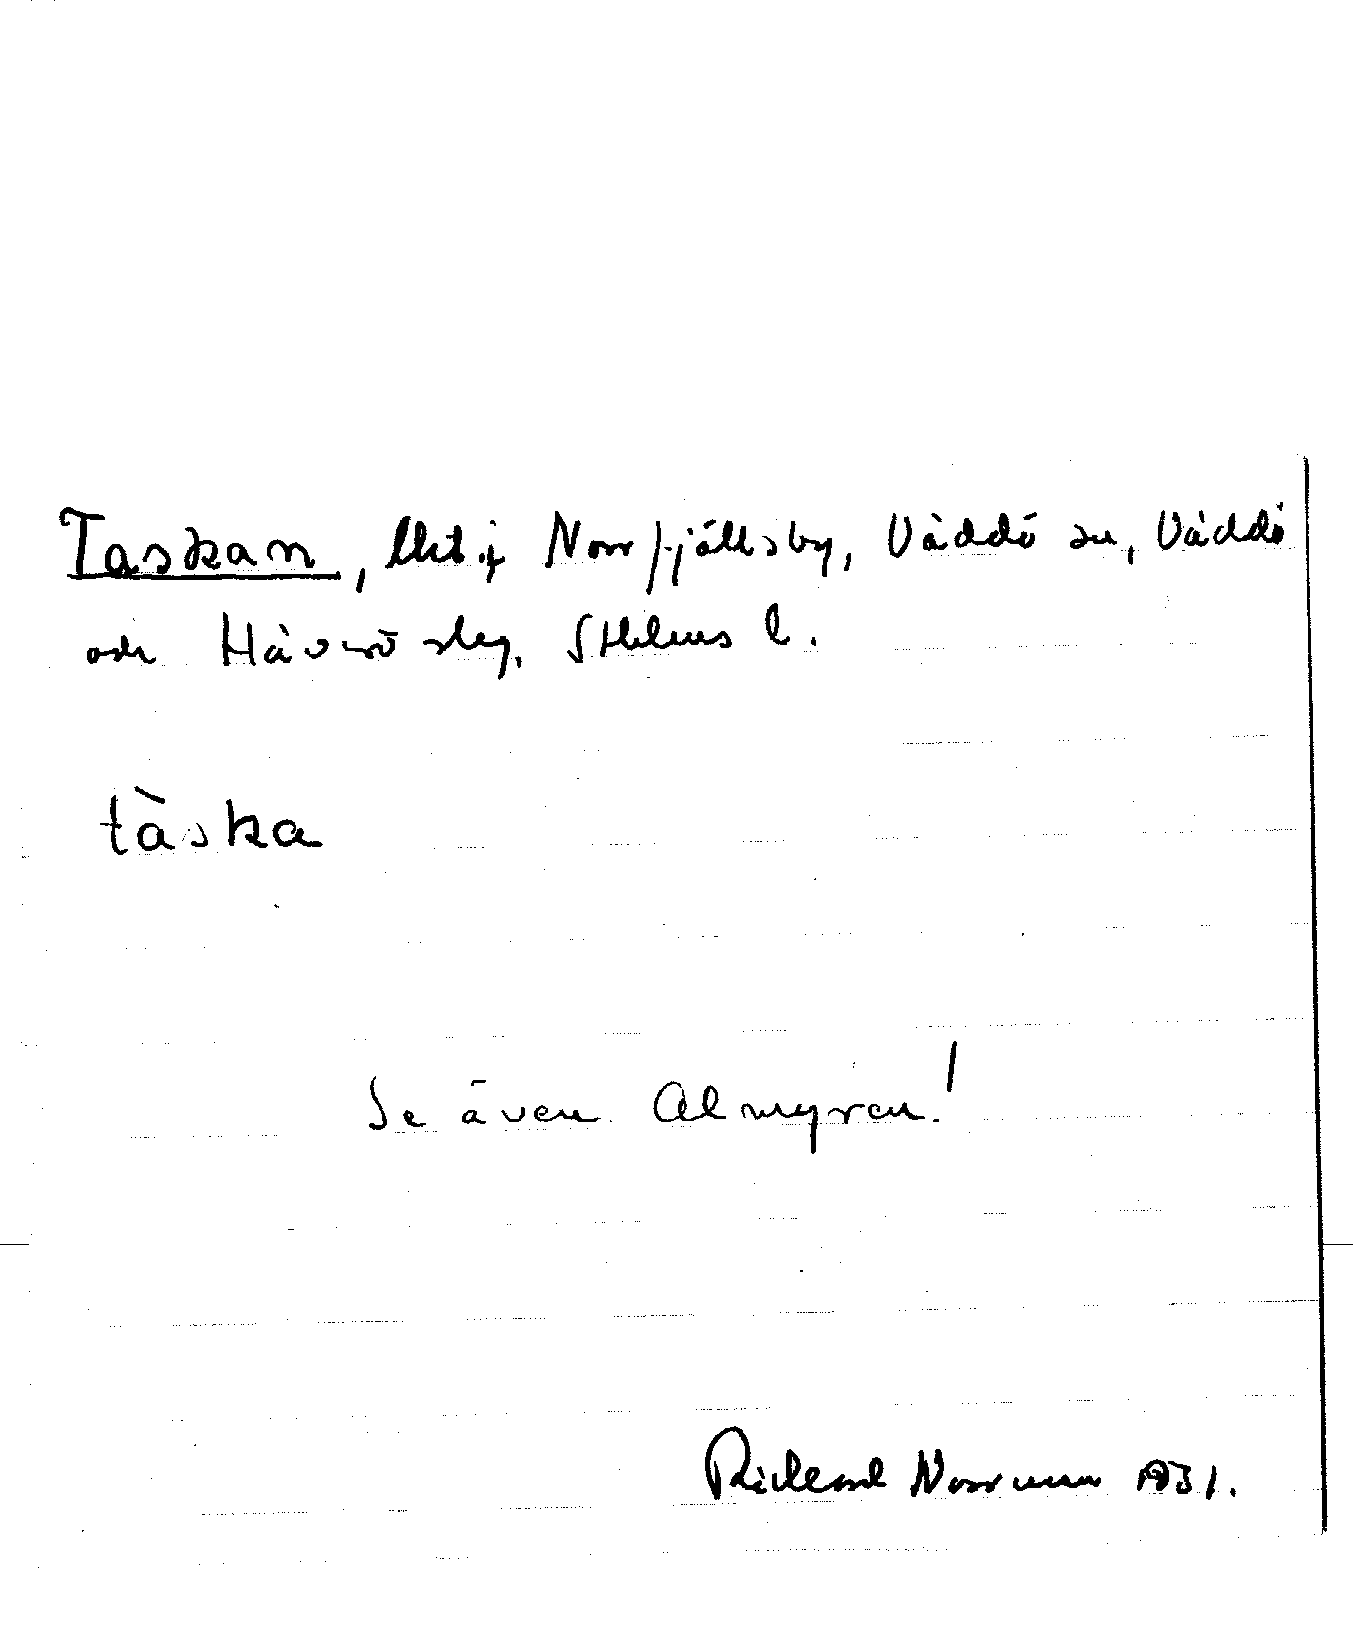 Taskan, Norrfjällsby, Väddö sn, Väddö
och Häverö skg, Sthlms l.
tàska
Se även Almyren!
Rickard Norrman 1931.